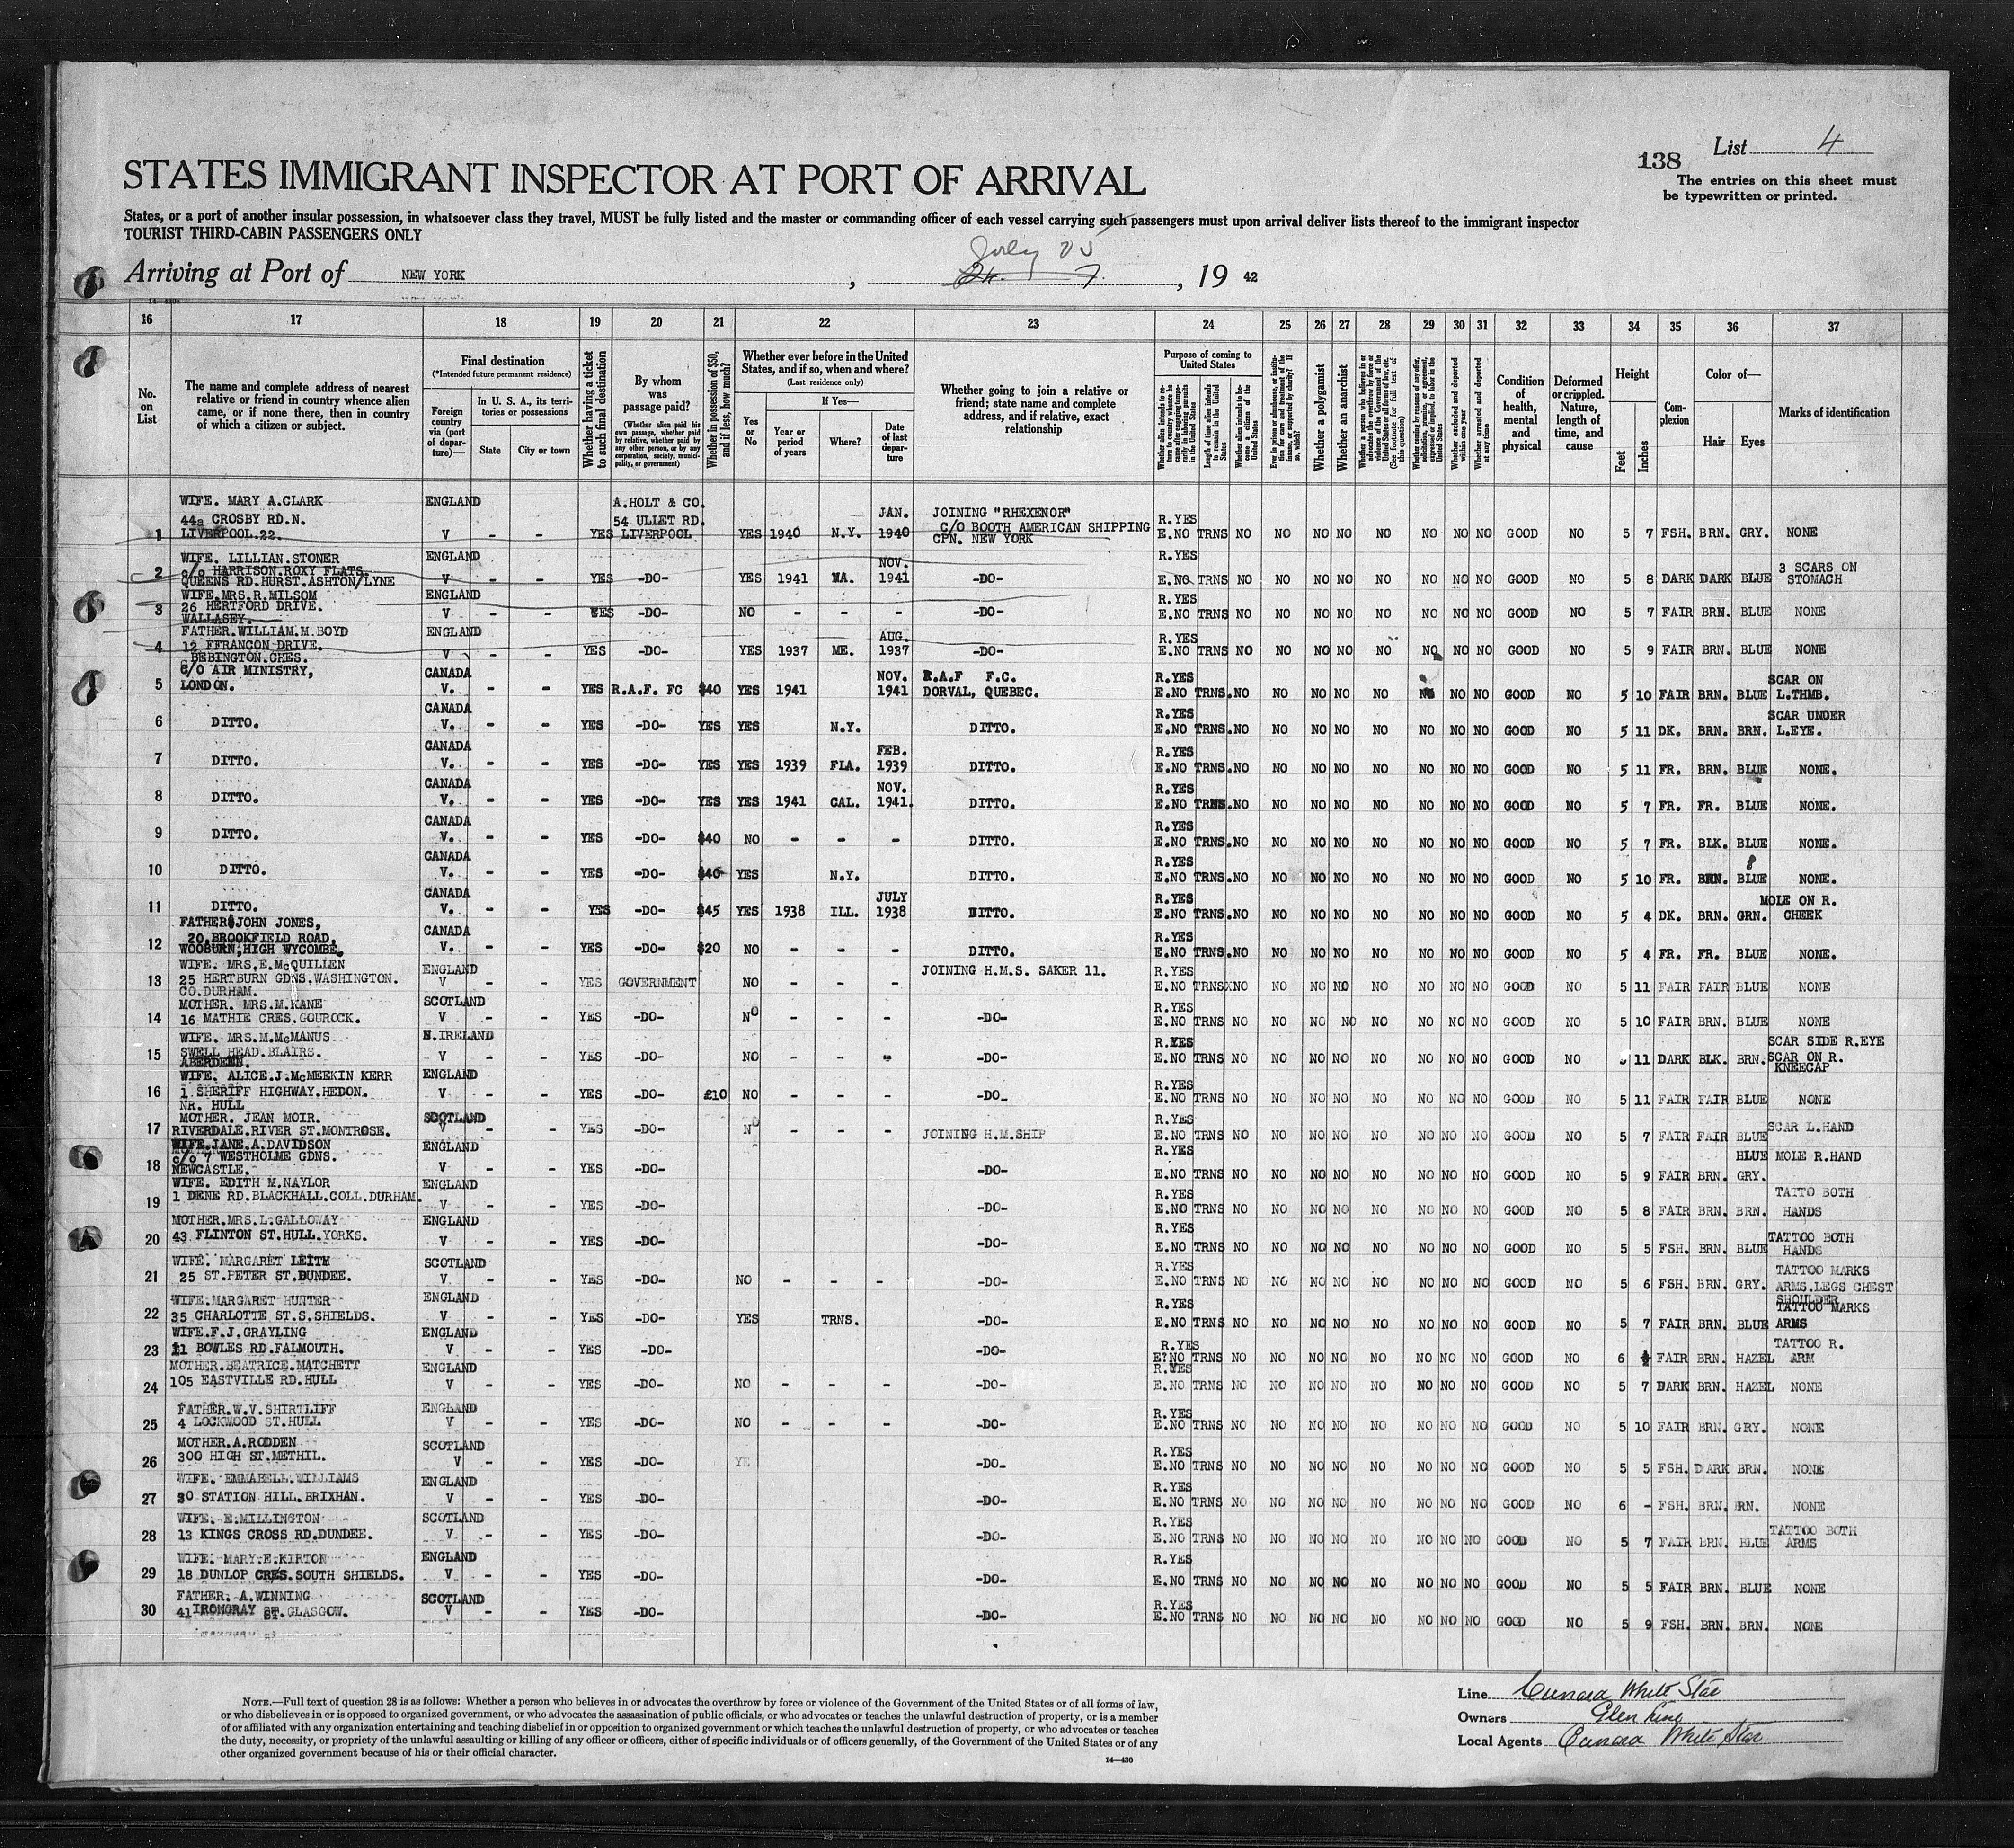 138 List 4
The entries on this sheet must
be typewritten or printed.
STATES IMMIGRANT INSPECTOR AT PORT OF ARRIVAL
States, or a port of another insular possession, in whatsoever class they travel, MUST be fully listed and the master or commanding officer of each vessel carrying such passengers must upon arrival deliver lists thereof to the immigrant inspector
TOURIST THIRD-CABIN PASSENGERS ONLY
July 25
Arriving at Port of NEW YORK , 24. 7. , 19 42
16 17 18 19 20 21 22 23 24 25 26 27 28 29 30 31 32 33 34 35 36 37
No. on List
The name and complete address of nearest relative or friend in country whence alien came, or if none there, then in country of which a citizen or subject.
Final destination
(*Intended future permanent residence)
Foreign country via (port of departure)—
In U. S. A., its territories or possessions
State City or town
Whether having a ticket to such final destination
By whom was passage paid?
(Whether alien paid his own passage, whether paid by relative, whether paid by any other person, or by any corporation, society, municipality, or government)
Whether in possession of $50, and if less, how much?
Whether ever before in the United States, and if so, when and where?
(Last residence only)
Yes or No
If Yes—
Year or period of years
Where?
Date of last departure
Whether going to join a relative or friend; state name and complete address, and if relative, exact relationship
Purpose of coming to United States
Length of time alien intends to remain in the United States
Whether alien intends to become a citizen of the United States
Whether a polygamist
Whether an anarchist
(See footnote for full text of this question)
Whether excluded and deported within one year
Whether arrested and deported at any time
Condition of health, mental and physical
Deformed or crippled. Nature, length of time, and cause
Height
Feet Inches
Complexion
Color of—
Hair Eyes
Marks of identification
WIFE. MARY A.CLARK ENGLAND A.HOLT & CO. JAN. JOINING "RHEXENOR" R.YES
44a CROSBY RD.N. 54 ULLET RD. C/O BOOTH AMERICAN SHIPPING
1 LIVERPOOL.22. V - - YES LIVERPOOL YES 1940 N.Y. 1940 CPN. NEW YORK E.NO TRNS NO NO NO NO NO NO NO NO GOOD NO 5 7 FSH. BRN. GRY. NONE
WIFE. LILLIAN.STONER ENGLAND NOV. R.YES 3 SCARS ON
2 c/o HARRISON.ROXY FLATS.
QUEENS RD.HURST.ASHTON/LYNE V - - YES -DO- YES 1941 VA. 1941 -DO- E.NO TRNS NO NO NO NO NO NO NO NO GOOD NO 5 8 DARK DARK BLUE STOMACH
WIFE.MRS.R.MILSOM ENGLAND R.YES
3 26 HERTFORD DRIVE. V - - YES -DO- NO - - - -DO- E.NO TRNS NO NO NO NO NO NO NO NO GOOD NO 5 7 FAIR BRN. BLUE NONE
WALLASEY.
FATHER.WILLIAM.M.BOYD ENGLAND AUG. R.YES
4 12 FFRANCON DRIVE. V - - YES -DO- YES 1937 ME. 1937 -DO- E.NO TRNS NO NO NO NO NO NO NO NO GOOD NO 5 9 FAIR BRN. BLUE NONE
BEBINGTON.CHES.
C/O AIR MINISTRY, CANADA NOV. R.A.F F.C. R.YES SCAR ON
5 LONDON. V. - - YES R.A.F. FC $40 YES 1941 1941 DORVAL, QUEBEC. E.NO TRNS. NO NO NO NO NO NO NO NO GOOD NO 5 10 FAIR BRN. BLUE L.THMB.
CANADA R.YES SCAR UNDER
6 DITTO. V. - - YES -DO- YES YES N.Y. DITTO. E.NO TRNS. NO NO NO NO NO NO NO NO GOOD NO 5 11 DK. BRN. BRN. L.EYE.
CANADA FEB. R.YES
7 DITTO. V. - - YES -DO- YES YES 1939 FLA. 1939 DITTO. E.NO TRNS. NO NO NO NO NO NO NO NO GOOD NO 5 11 FR. BRN. BLUE NONE.
CANADA NOV. R.YES
8 DITTO. V. - - YES -DO- YES YES 1941 CAL. 1941. DITTO. E.NO TRNS. NO NO NO NO NO NO NO NO GOOD NO 5 7 FR. FR. BLUE NONE.
CANADA R.YES
9 DITTO. V. - - YES -DO- $40 NO - - - DITTO. E.NO TRNS. NO NO NO NO NO NO NO NO GOOD NO 5 7 FR. BLK. BLUE NONE.
CANADA R.YES
10 DITTO. V. - - YES -DO- $40 YES N.Y. DITTO. E.NO TRNS. NO NO NO NO NO NO NO NO GOOD NO 5 10 FR. BRN. BLUE NONE.
CANADA JULY R.YES MOLE ON R.
11 DITTO. V. - - YES -DO- $45 YES 1938 ILL. 1938 DITTO. E.NO TRNS. NO NO NO NO NO NO NO NO GOOD NO 5 4 DK. BRN. GRN. CHEEK
FATHER JOHN JONES, CANADA R.YES
12 20,BROOKFIELD ROAD, V. - - YES -DO- $20 NO - - - DITTO. E.NO TRNS. NO NO NO NO NO NO NO NO GOOD NO 5 4 FR. FR. BLUE NONE.
WOOBURN,HIGH WYCOMBE.
WIFE. MRS.E.McQUILLEN ENGLAND JOINING H.M.S. SAKER 11. R.YES
13 25 HERTBURN GDNS.WASHINGTON. V - - YES GOVERNMENT NO - - - E.NO TRNSXNO NO NO NO NO NO NO NO GOOD NO 5 11 FAIR FAIR BLUE NONE
CO.DURHAM.
MOTHER. MRS.M.KANE SCOTLAND R.YES
14 16 MATHIE CRES.GOUROCK. V - - YES -DO- NO - - - -DO- E.NO TRNS NO NO NO NO NO NO NO NO GOOD NO 5 10 FAIR BRN. BLUE NONE
WIFE. MRS.M.McMANUS N.IRELAND R.YES SCAR SIDE R.EYE
15 SWELL HEAD.BLAIRS. V - - YES -DO- NO - - - -DO- E.NO TRNS NO NO NO NO NO NO NO NO GOOD NO 11 DARK BLK. BRN. SCAR ON R.
ABERDEEN. KNEECAP
WIFE. ALICE.J.McMEEKIN KERR ENGLAND R.YES
16 1 SHERIFF HIGHWAY.HEDON. V - - YES -DO- £10 NO - - - -DO- E.NO TRNS NO NO NO NO NO NO NO NO GOOD NO 5 11 FAIR FAIR BLUE NONE
NR. HULL
MOTHER. JEAN MOIR. SCOTLAND R.YES SCAR L.HAND
17 RIVERDALE.RIVER ST.MONTROSE. V - - YES -DO- NO - - - JOINING H.M.SHIP E.NO TRNS NO NO NO NO NO NO NO NO GOOD NO 5 7 FAIR FAIR BLUE
WIFE.JANE.A.DAVIDSON ENGLAND R.YES BLUE MOLE R.HAND
c/o 7 WESTHOLME GDNS.
18 NEWCASTLE. V - - YES -DO- -DO- E.NO TRNS NO NO NO NO NO NO NO NO GOOD NO 5 9 FAIR BRN. GRY.
WIFE. EDITH M.NAYLOR ENGLAND R.YES TATTO BOTH
19 1 DENE RD.BLACKHALL.COLL.DURHAM. V - - YES -DO- -DO- E.NO TRNS NO NO NO NO NO NO NO NO GOOD NO 5 8 FAIR BRN. BRN. HANDS
MOTHER.MRS.L.GALLOWAY ENGLAND R.YES TATTOO BOTH
20 43 FLINTON ST.HULL.YORKS. V - - YES -DO- -DO- E.NO TRNS NO NO NO NO NO NO NO NO GOOD NO 5 5 FSH. BRN. BLUE HANDS
WIFE. MARGARET LEITH SCOTLAND R.YES TATTOO MARKS
21 25 ST.PETER ST.DUNDEE. V - - YES -DO- NO - - - -DO- E.NO TRNS NO NO NO NO NO NO NO NO GOOD NO 5 6 FSH. BRN. GRY. ARMS.LEGS CHEST
SHOULDER
WIFE.MARGARET HUNTER ENGLAND R.YES TATTOO MARKS
22 35 CHARLOTTE ST.S.SHIELDS. V - - YES -DO- YES TRNS. -DO- E.NO TRNS NO NO NO NO NO NO NO NO GOOD NO 5 7 FAIR BRN. BLUE ARMS
WIFE.F.J.GRAYLING ENGLAND R.YES TATTOO R.
23 11 BOWLES RD.FALMOUTH. V - - YES -DO- -DO- E?NO TRNS NO NO NO NO NO NO NO NO GOOD NO 6 FAIR BRN. HAZEL ARM
MOTHER.BEATRICE.MATCHETT ENGLAND R.YES
24 105 EASTVILLE RD.HULL V - - YES -DO- NO - - - -DO- E.NO TRNS NO NO NO NO NO NO NO NO GOOD NO 5 7 DARK BRN. HAZEL NONE
FATHER.W.V.SHIRTLIFF ENGLAND R.YES
25 4 LOCKWOOD ST.HULL V - - YES -DO- NO - - - -DO- E.NO TRNS NO NO NO NO NO NO NO NO GOOD NO 5 10 FAIR BRN. GRY. NONE
MOTHER.A.RODDEN SCOTLAND R.YES
26 300 HIGH ST.METHIL. V - - YES -DO- -DO- E.NO TRNS NO NO NO NO NO NO NO NO GOOD NO 5 5 FSH. DARK BRN. NONE
WIFE. EMMABELL.WILLIAMS ENGLAND R.YES
27 30 STATION HILL.BRIXHAN. V - - YES -DO- -DO- E.NO TRNS NO NO NO NO NO NO NO NO GOOD NO 6 - FSH. BRN. BRN. NONE
WIFE. E.MILLINGTON SCOTLAND R.YES TATTOO BOTH
28 13 KINGS CROSS RD.DUNDEE. V - - YES -DO- -DO- E.NO TRNS NO NO NO NO NO NO NO NO GOOD NO 5 7 FAIR BRN. BLUE ARMS
WIFE. MARY.E.KIRTON ENGLAND R.YES
29 18 DUNLOP CRES.SOUTH SHIELDS. V - - YES -DO- -DO- E.NO TRNS NO NO NO NO NO NO NO NO GOOD NO 5 5 FAIR BRN. BLUE NONE
FATHER. A.WINNING SCOTLAND R.YES
30 41 IRONGRAY ST.GLASGOW. V - - YES -DO- -DO- E.NO TRNS NO NO NO NO NO NO NO NO GOOD NO 5 9 FSH. BRN. BRN. NONE
NOTE.—Full text of question 28 is as follows: Whether a person who believes in or advocates the overthrow by force or violence of the Government of the United States or of all forms of law,
or who disbelieves in or is opposed to organized government, or who advocates the assassination of public officials, or who advocates or teaches the unlawful destruction of property, or is a member
of or affiliated with any organization entertaining and teaching disbelief in or opposition to organized government or which teaches the unlawful destruction of property, or who advocates or teaches
the duty, necessity, or propriety of the unlawful assaulting or killing of any officer or officers, either of specific individuals or of officers generally, of the Government of the United States or of any
other organized government because of his or their official character.
14—430
Line Cunard White Star
Owners Glen Line
Local Agents Cunard White Star